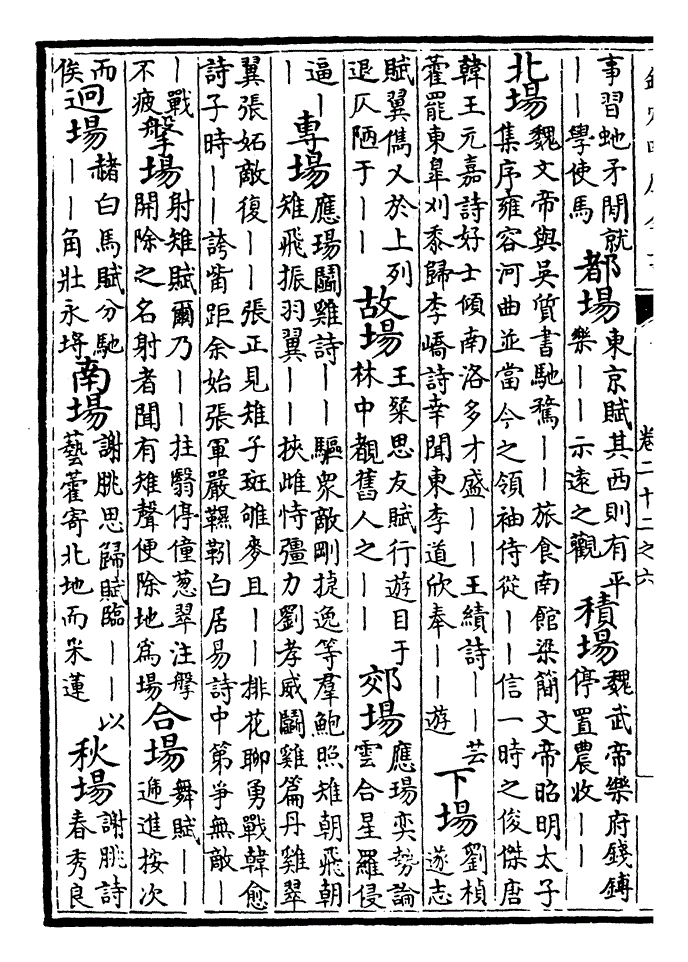 卷二十二之六
事習虵矛閒就
——學使馬
都場
東京賦其西則有平
樂——示遠之觀
積場
魏武帝樂府錢鎛
停置農收——
北場
魏文帝與吳質書馳騖——旅食南館梁簡文帝昭明太子
集序雍容河曲並當今之領袖侍從——信一時之俊傑唐
韓王元嘉詩好士傾南洛多才盛——王績詩——芸
藿罷東臯刈黍歸李嶠詩幸聞東李道欣奉——遊
下場
劉楨
遂志
賦翼儁乂於上列
退仄陋于——
故場
王粲思友賦行遊目于
林中覩舊人之——
郊場
應瑒奕勢論
雲合星羅侵
逼—
—
專場
應瑒鬭雞詩——驅衆敵剛捷逸等羣鮑照雉朝飛朝
雉飛振羽翼——挾雌恃彊力劉孝威鬭雞篇丹雞翠
翼張妬敵復——張正見雉子斑雊麥且——排花聊勇戰韓愈
詩子時——誇觜距余始張軍嚴韅靷白居易詩中第爭無敵—
—戰
不疲
搫場
射雉賦爾乃——拄翳停僮葱翠注搫
開除之名射者聞有雉聲便除地為場
合場
舞賦——
遞進按次
而
俟
迥場
赭白馬賦分馳
——角壯永埒
南場
謝朓思歸賦臨——以
藝藿寄北地而采蓮
秋場
謝朓詩
春秀良